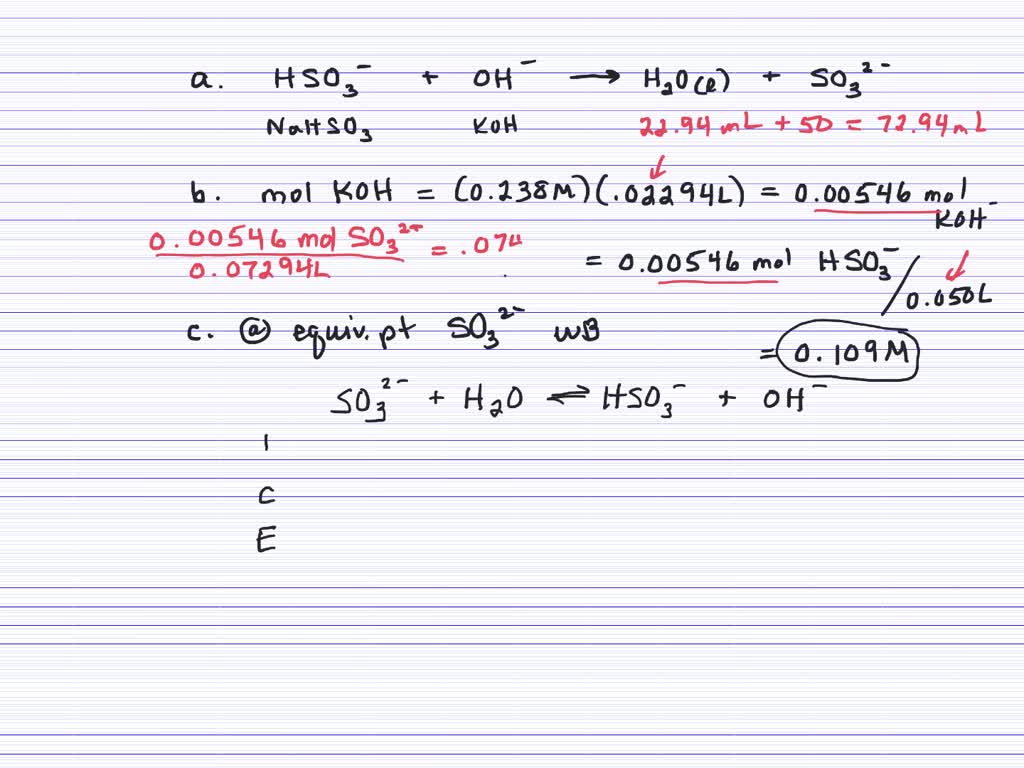 a. HSO₃⁻ + OH⁻ → H₂O(l) + SO₃²⁻
NaHSO₃ KOH 22.94 mL + 50 = 72.94 mL
b. mol KOH = (0.238M)(.02294L) = 0.00546 mol KOH⁻
0.00546 mol SO₃²⁻ / 0.07294L = .074
= 0.00546 mol HSO₃⁻ / 0.050L
c. @ equiv. pt SO₃²⁻ WB
= 0.109M
SO₃²⁻ + H₂O ⇌ HSO₃⁻ + OH⁻
I
C
E